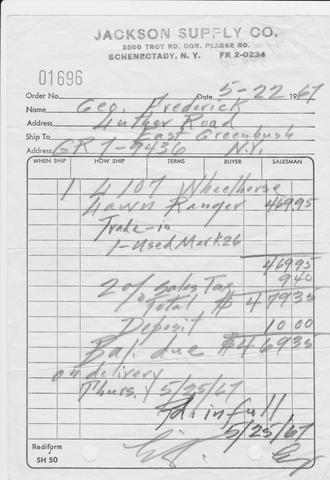 JACKSON SUPPLY CO.
2500 TROY RD. COR. PLARSE RD.
SCHENECTADY, N.Y. FR 2-0234
01696
Order No. Date 5-22 1967
Name Geo. Frederick
Address Luther Road
Ship To East Greenbush
Address GR 7-9436 N.Y.
WHEN SHIP HOW SHIP TERMS BUYER SALESMAN
1 4107 Wheelhorse
Lawn Ranger 469.95
Trade-in
1-Used Mark 26
469.95
2% Sales Tax 9.40
Total $479.35
Deposit 10.00
Bal. due $469.35
on delivery
Thurs. 5/25/67
Pd. in full
5/25/67
Rediform
5H 50